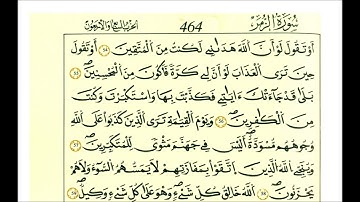 سُورَةُ الزُّمَرِ 464 الحزب السابع والأربعون
أَوْ تَقُولَ لَوْ أَنَّ اَللَّهَ هَدٰىنِي لَكُنتُ مِنَ اَلْمُتَّقِينَ أَوْ تَقُولَ
حِينَ تَرَى اَلْعَذَابَ لَوْ أَنَّ لِي كَرَّةً فَأَكُونَ مِنَ اَلْمُحْسِنِينَ
بَلٰى قَدْ جَآءَتْكَ ءَايَٰتِي فَكَذَّبْتَ بِهَا وَاسْتَكْبَرْتَ وَكُنتَ
مِنَ اَلْكَٰفِرِينَ وَيَوْمَ اَلْقِيَٰمَةِ تَرَى اَلذِينَ كَذَبُوا عَلَى اَللَّهِ
وُجُوهُهُم مُّسْوَدَّةٌ اَلَيْسَ فِي جَهَنَّمَ مَثْوًى لِّلْمُتَكَبِّرِينَ
وَيُنَجِّي اِللَّهُ اُلذِينَ اَتَّقَوْا بِمَفَازَتِهِمْ لَا يَمَسُّهُمُ اُلسُّوٓءُ وَلَا هُمْ
يَحْزَنُونَ اَللَّهُ خَٰلِقُ كُلِّ شَيْءٍ وَهُوَ عَلَىٰ كُلِّ شَيْءٍ وَكِيلٌ